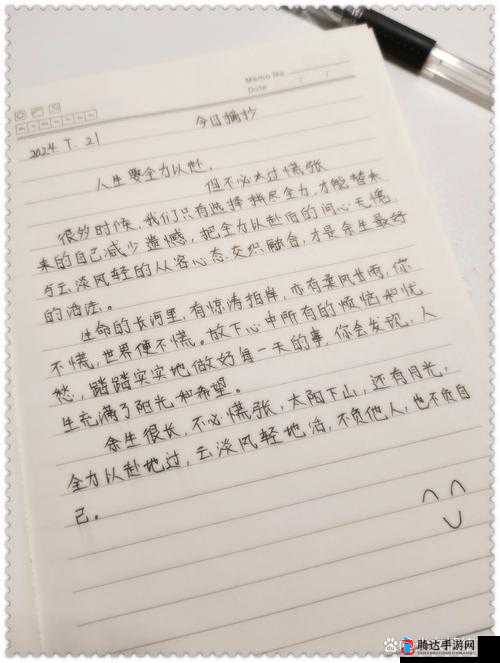 Memo No.
Date
今日摘抄
2024. 7. 21
人生要全力以赴，
但不必太过慌张
很多时候，我们只有选择拼尽全力，才能替未
来的自己减少遗憾，把全力以赴后的问心无愧
与云淡风轻的从容心态，交织融合，才是余生最好
的活法。
生命的长河里，有惊涛拍岸，亦有柔风甘雨，你
不慌，世界便不慌。放下心中所有的烦恼和忧
愁，踏踏实实地做好每一天的事，你会发现，人
生充满了阳光和希望。
余生很长，不必慌张，太阳下山，还有月光，
全力以赴地过，云淡风轻地活，不负他人，也不负自
己。
腾达手游网